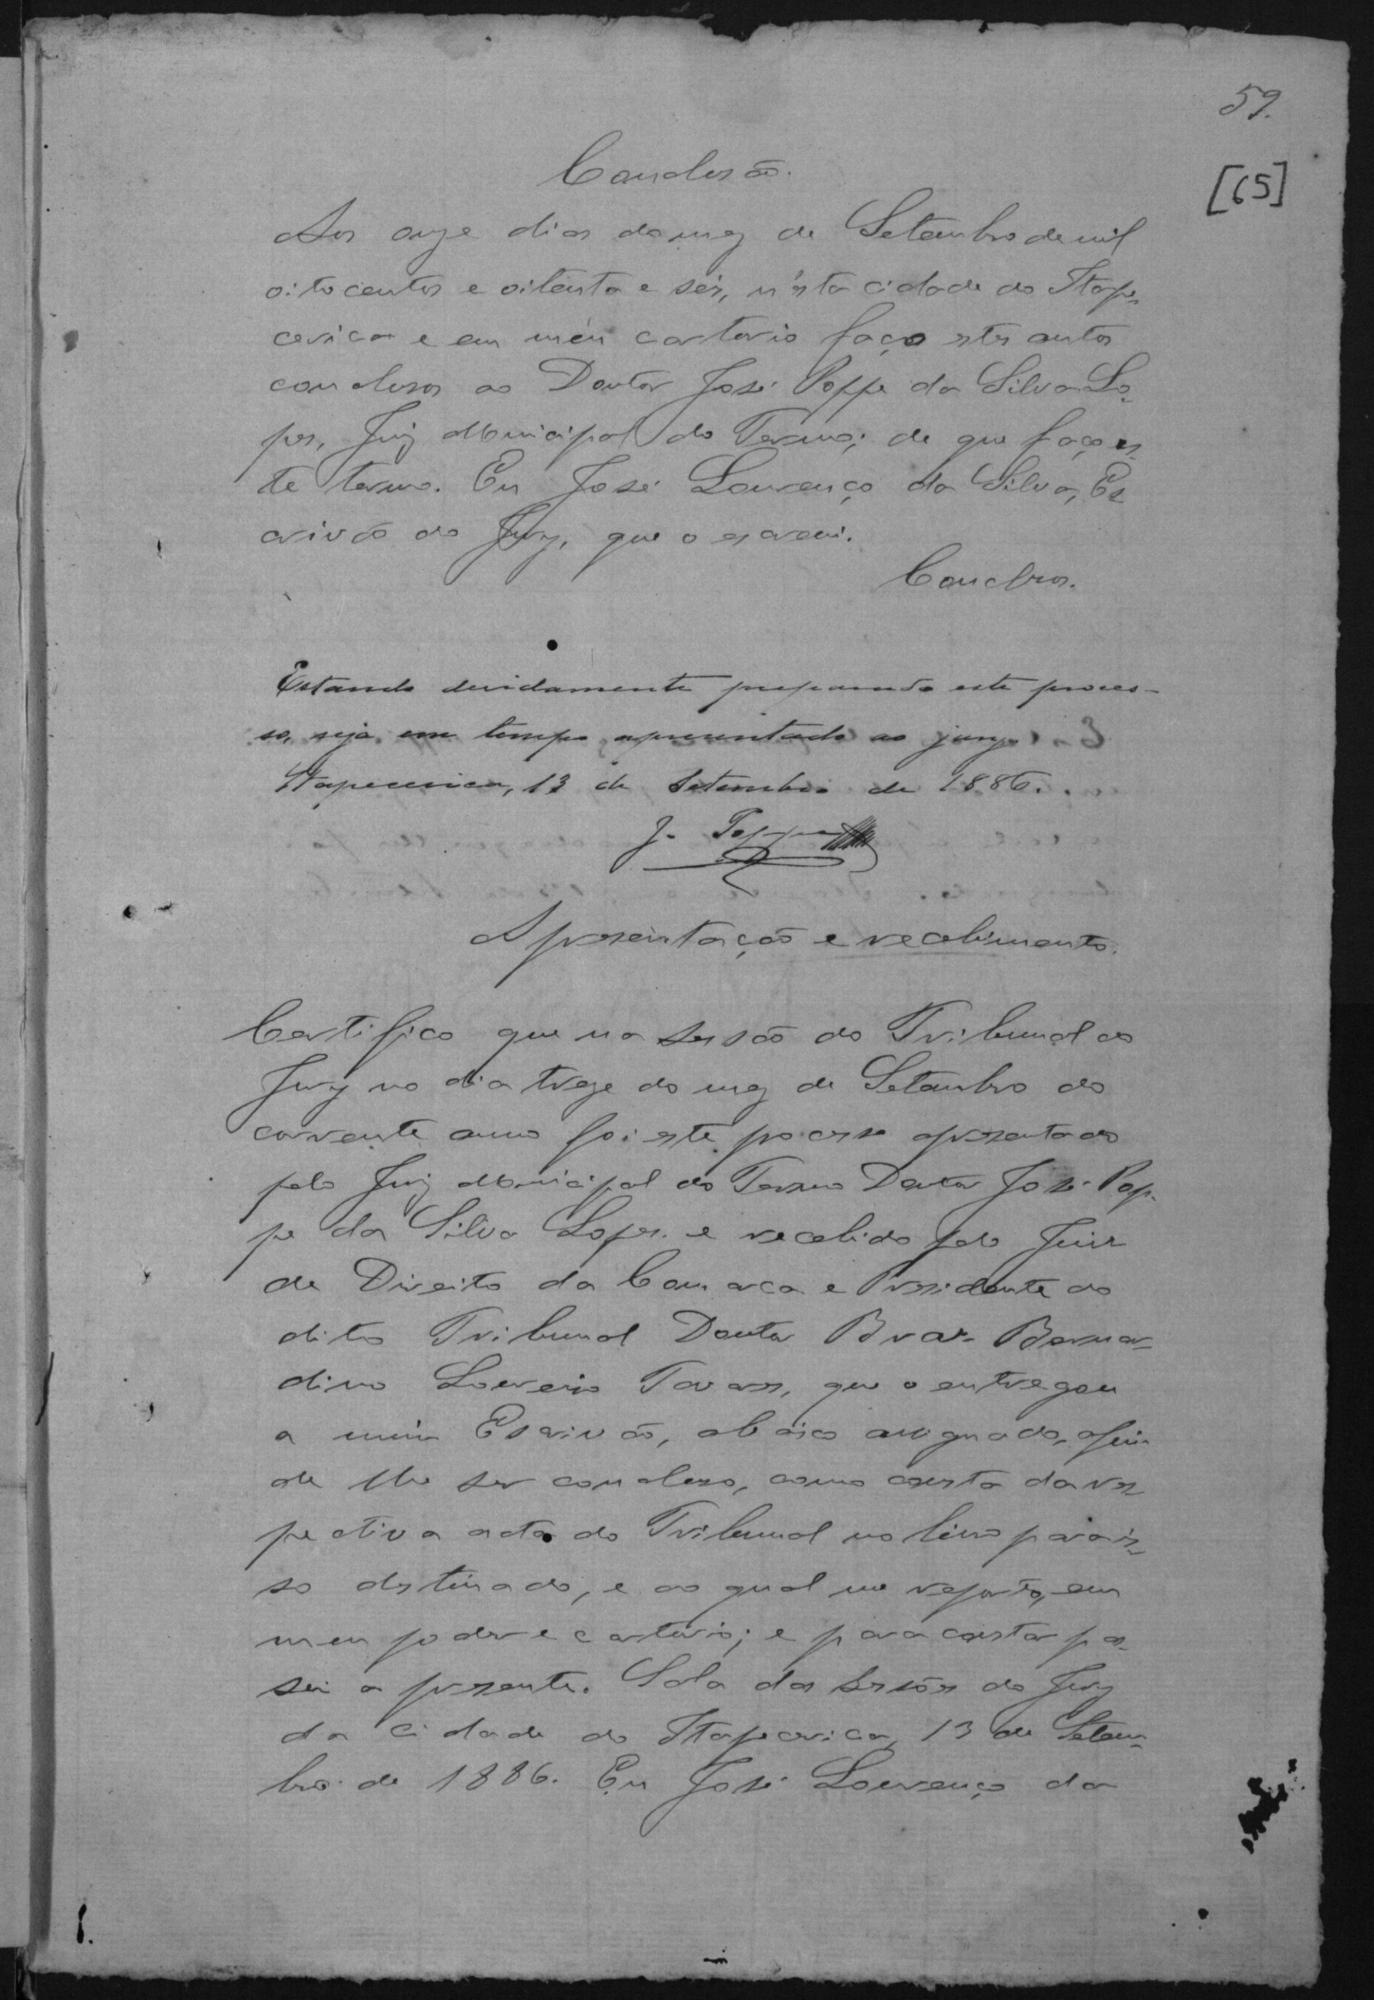 59.
[65]
Conclusão.
Aos onze dias do mez de Setembro de mil
oitocentos e oitenta e seis, n'esta cidade de Itape-
cerica e em meu cartorio faço estes autos
conclusos ao Doutor José Poppe da Silva Lo-
pes, Juiz Municipal do Termo; de que faço es-
te termo. Eu José Lourenço da Silva, Es
crivão do Jury, que o escrevi.
Conclusos.
Estando devidamente preparado este proces-
so, seja em tempo apresentado ao jury.
Itapecerica, 13 de Setembro de 1886.
J. Poppe
Apresentação e recebimento.
Certifico que na sessão do Tribunal do
Jury no dia treze do mez de Setembro do
corrente anno foi este processo apresentado
pelo Juiz Municipal do Termo Doutor José Pop-
pe da Silva Lopes e recebido pelo Juiz
de Direito da Comarca e Presidente do
dito Tribunal Doutor Braz Bernar-
dino Loureiro Tavares, que o entregou
a mim Escrivão, abaixo assignado, afim
de lhe ser concluso, como consta da res-
pectiva acta do Tribunal no livro para is-
so destinado, e ao qual me reporto, em
meu poder e cartorio; e para constar pas-
sei a presente. Sala das Sessões do Jury
da cidade de Itapecerica, 13 de Setem-
bro de 1886. Eu José Lourenço da